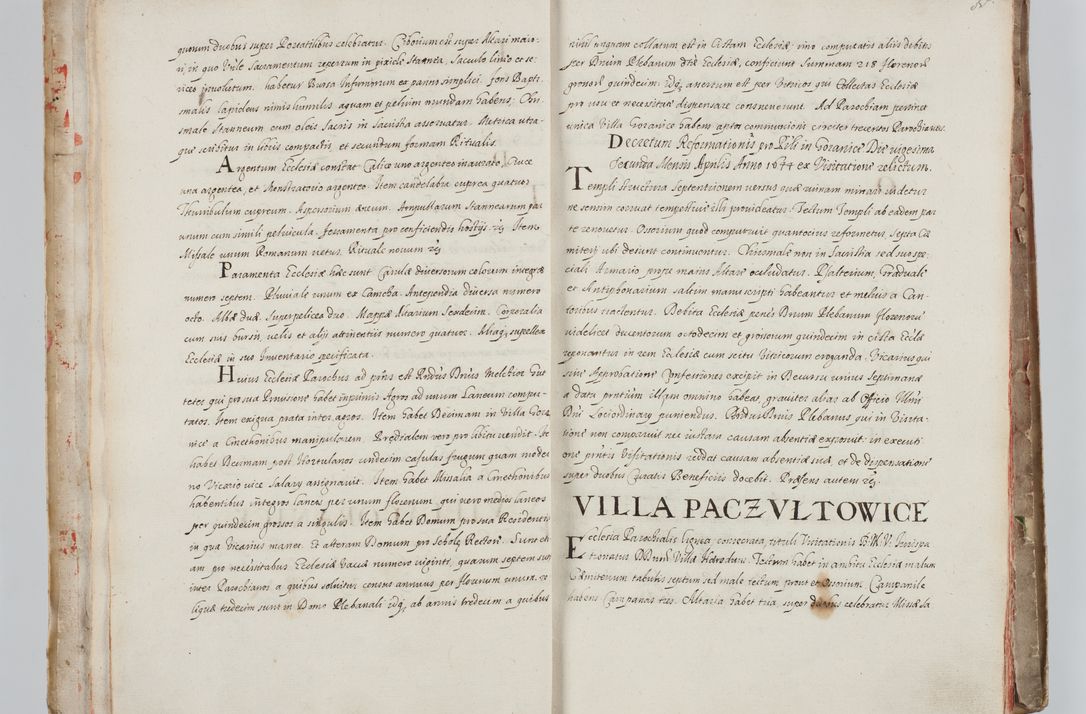 quorum duobus super Portatilibus celebratur. Ciborium est super Altari maio-
ri, in quo Vnle Sacramentum repertum in pixide Stannea, Sacculo lineo et se-
riceo inuolutum. habetur Bursa Infirmorum ex panno simplici. fons Bapti-
smalis lapideus nimis humilis aquam et peluim mundam habens; Chri-
smale Stanneum cum oleis Sacris in Sacristia asseruatur. Metrica utra-
que scribitur in libris compactis, et secundum formam Ritualis.
Argentum Ecclesiæ constat Calice uno argenteo inaurato, Cruce
una argentea, et Monstratorio argenteo. Item candelabra cuprea quatuor
Thuribulum cupreum. Aspersorium æneum. Ampullarum Stannearum par
unum cum simili peluicula. ferramenta pro conficiendis hostijs. Item
Missale unum Romanum vetus. Rituale nouum
Paramenta Ecclesiæ hæc sunt Casulæ diuersorum colorum integræ
numero septem. Pluuiale unum ex Camcha. Antependia diuersa numero
octo. Albæ duæ. Superpelicea duo. Mappæ Altarium Sexdecim. Corporalia
cum suis bursis, velis et alijs attinentijs numero quatuor. Aliaq supellex
Ecclesiæ in suo Inuentario specificata.
Huius Ecclesiæ Parochus ad præs est Rndus Dnus Melchior Gut
teter qui pro sua Prouisione habet inprimis Agros ad unum Laneum compu-
tatos. Item exigua prata inter agros. Item habet Decimam in Villa Gora
nice a Cmethonibus manipularem. Prædialem vero pro libitu vendit. Ite
habet Decimam post Hortulanos undecim casulas frugum quam moder
no Vicario vice Salary assignauit. Item habet Missalia a Cmethonibus
habentibus integros laneos per unum florenum, qui vero medios laneos
per quindecim grossos a singulis. Item habet Domum pro sua Residentia
in qua Vicarius manet. Et alteram Domum pro Scholæ Rectore. Sunt eti
am pro necessitatibus Ecclesiæ Vaccæ numero viginti, quarum septem sunt
inter Parochianos a quibus soluitur census annuus per florenum unum, re
liquæ tredecim sunt in Domo Plebanali idq ab annis tredecim a quibus
nihil unquam collatum est in Cistam Ecclesiæ: vno computatis alijs debitis
per Dnum Plebanum dtæ Ecclesiæ, conficiunt Summam 218 florenorum
grossorum quindecim. idq auersum est per Vitricos qui Collectas Ecclesiæ
pro usu et necessitate dispensare consueuerunt. Ad Parochiam pertinet
unica Villa Goranice habens aptos communioni circiter trecentos Parochianos.
Decretum Reformationis pro Ecclia in Goranice Die vigesima
Secunda Mensis Aprilis Anno 1644 ex Visitatione relictum.
Templi structura Septentrionem versus quæ ruinam minari videtur
ne sensim corruat tempestiue illi prouideatur. Tectum Templi ab eadem par
te renouetur. Ossorium quod computruit quantocius reformetur, Septa Cæ
miterij ubi desunt continuentur. Chrismale non in Sacristia sed in spe-
ciali Armario prope maius Altare occludatur. Psalterium, Graduale
et Antiphonarium saltem manuscripti habeantur et melius a Can-
toribus tractentur. Debita Ecclesiæ penes Dnum Plebanum florenorum
videlicet ducentorum octodecim et grossorum quindecim in cista Eccliæ
reponantur in rem Ecclesiæ cum scitu Vitricorum eroganda. Vicarius qui
sine Approbatione Confessiones excipit in Decursu unius Septimanæ
a data præntium illam omnino habeat, grauiter alias ab Officio Illmi
Dni Loci Ordinary puniendus. Rndus Dnus Plebanus, qui in Visita-
tione non comparuit nec iustam causam absentiæ exposuit: in executi
one præntis Visitationis reddat causam absentiæ suæ, et de dispensatione
super duobus Curatis Beneficijs docebit. Præsens autem
VILLA PACZVLTOWICE
Ecclesia Parochialis lignea consecrata, tituli Visitationis B.M.V. Iurispa
tronatus DDnorum Villæ Hæredum. Tectum habet in ambitu Ecclesiæ malum
Cæmiterium tabulis septum sed male tectum, prout et Ossorium. Campanile
habens Campanas tres. Altaria habet tria, super duobus celebratur Missæ Sa